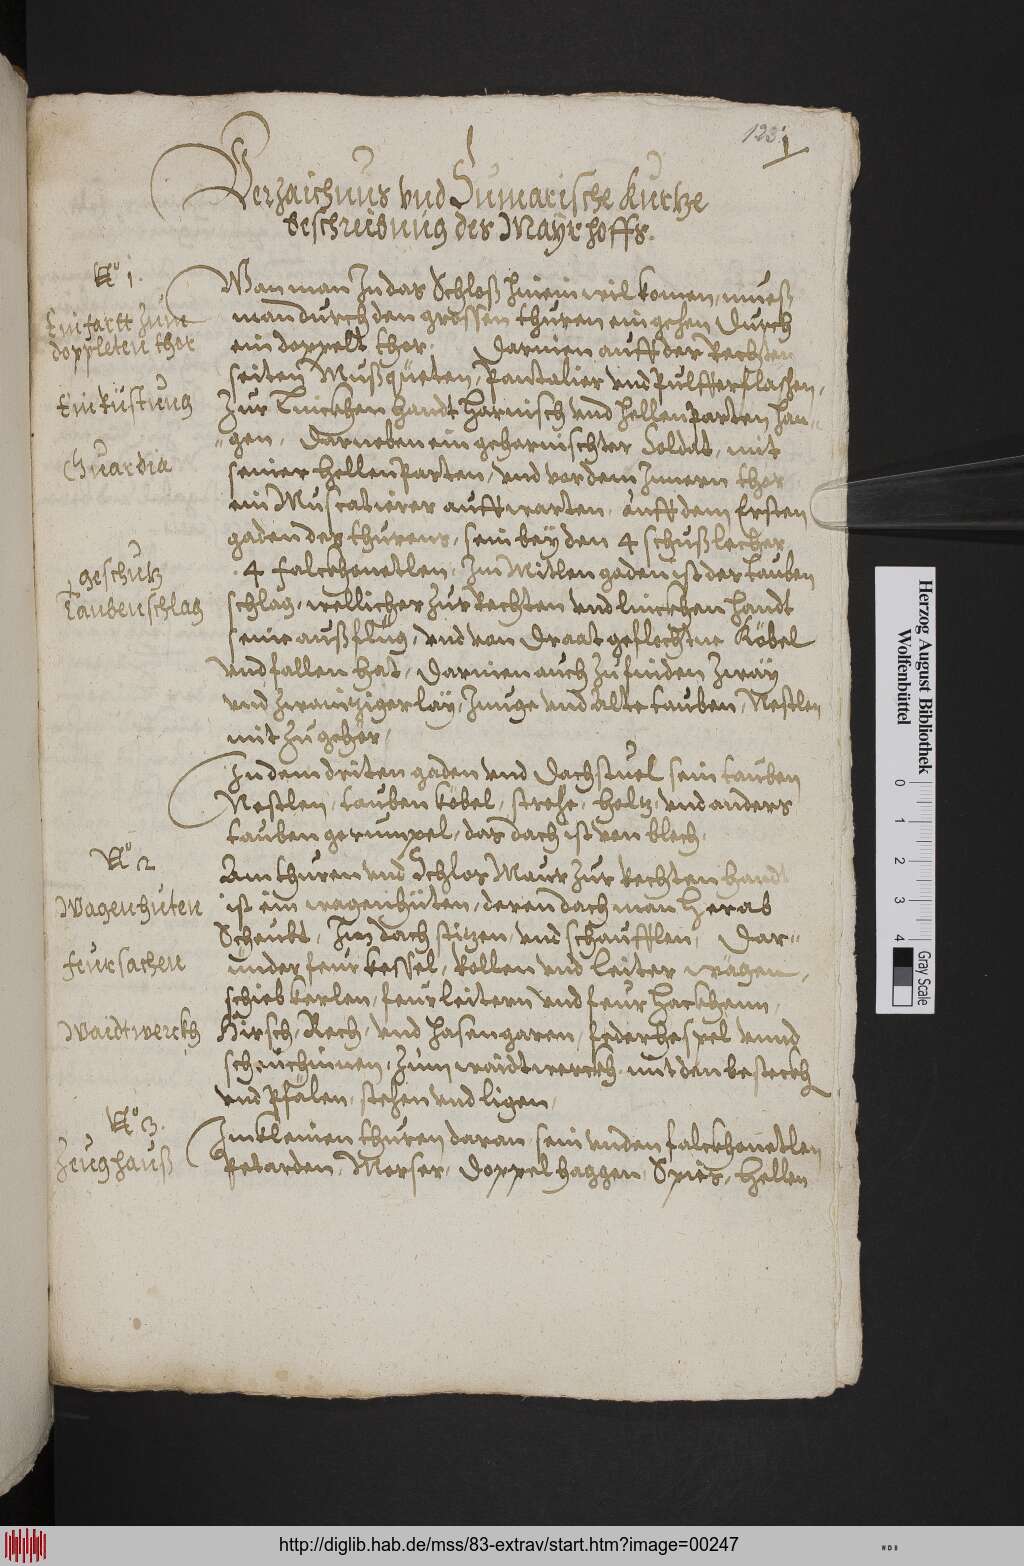 123.
1
Verzaichnus vnd Sumarische kurtze
beschreibung des Mayrhoffs.
No 1.
Einfartt zum
doppleten thor
Einrüstung
Guardia
Wan man in das Schloß hinein wil komen, mueß
man durch den grossen thuren ein gehen durch
ein doppelt thor. Darinen auff der Rechten
seiten Mußqueten, Pantalier vnd Pulfferflaschen,
Zur Linckhen handt Harnisch vnd Hellenparten han-
gen, Darneben ein geharnischter Soldat, mit
seiner Hellenparten, vnd vor dem Innern thor
ein Muscatierer auffwarten, auff dem Ersten
gaden des thurens, sein bey den 4 schußlecher
geschütz
Taubenschlag
4 falckhenetlen, Im Mitlen gaden ist der tauben
schlag, wellicher zur Rechten vnd linckhen handt
seine außflüg, vnd von Draat geflechtne Köbel
vnd fallen hat, Darinen auch zu finden zway
vnd zwaintzigerlay, Junge vnd Alte tauben, Nestlen
mit zugehör,
In dem driten gaden vnd Dachstuel sein tauben
Nestlen, tauben köbel, strohe, holtz, vnd anders
tauben gerümpel, das dach ist von blech,
No 2
Wagenhüten
feursachen
Waidtwerckh
Am thuren vnd Schlos Maur zur Rechten handt
ist ein wagenhüten, deren dach man herab
Scheubt, Im dach stizen, vnd schaufflen, Dar-
under feur kessel, kollen vnd leiter wägen,
schiebkerlen, feurleitern vnd feur Hackhenn,
Hirsch, Rech, vnd Hasengaren, federhespel vnnd
scheuchinnen, zum waidtwerckh mit den besteckh
vnd Pfälen, stehen vnd ligen,
No 3.
Zeughauß
Im kleinen thuren daran, sein vnden falckhenetlen
Petarden, Morser, Doppelhaggen, Spies, Hellen
Herzog August Bibliothek
Wolfenbüttel
0 1 2 3 4
Gray Scale
http://diglib.hab.de/mss/83-extrav/start.htm?image=00247